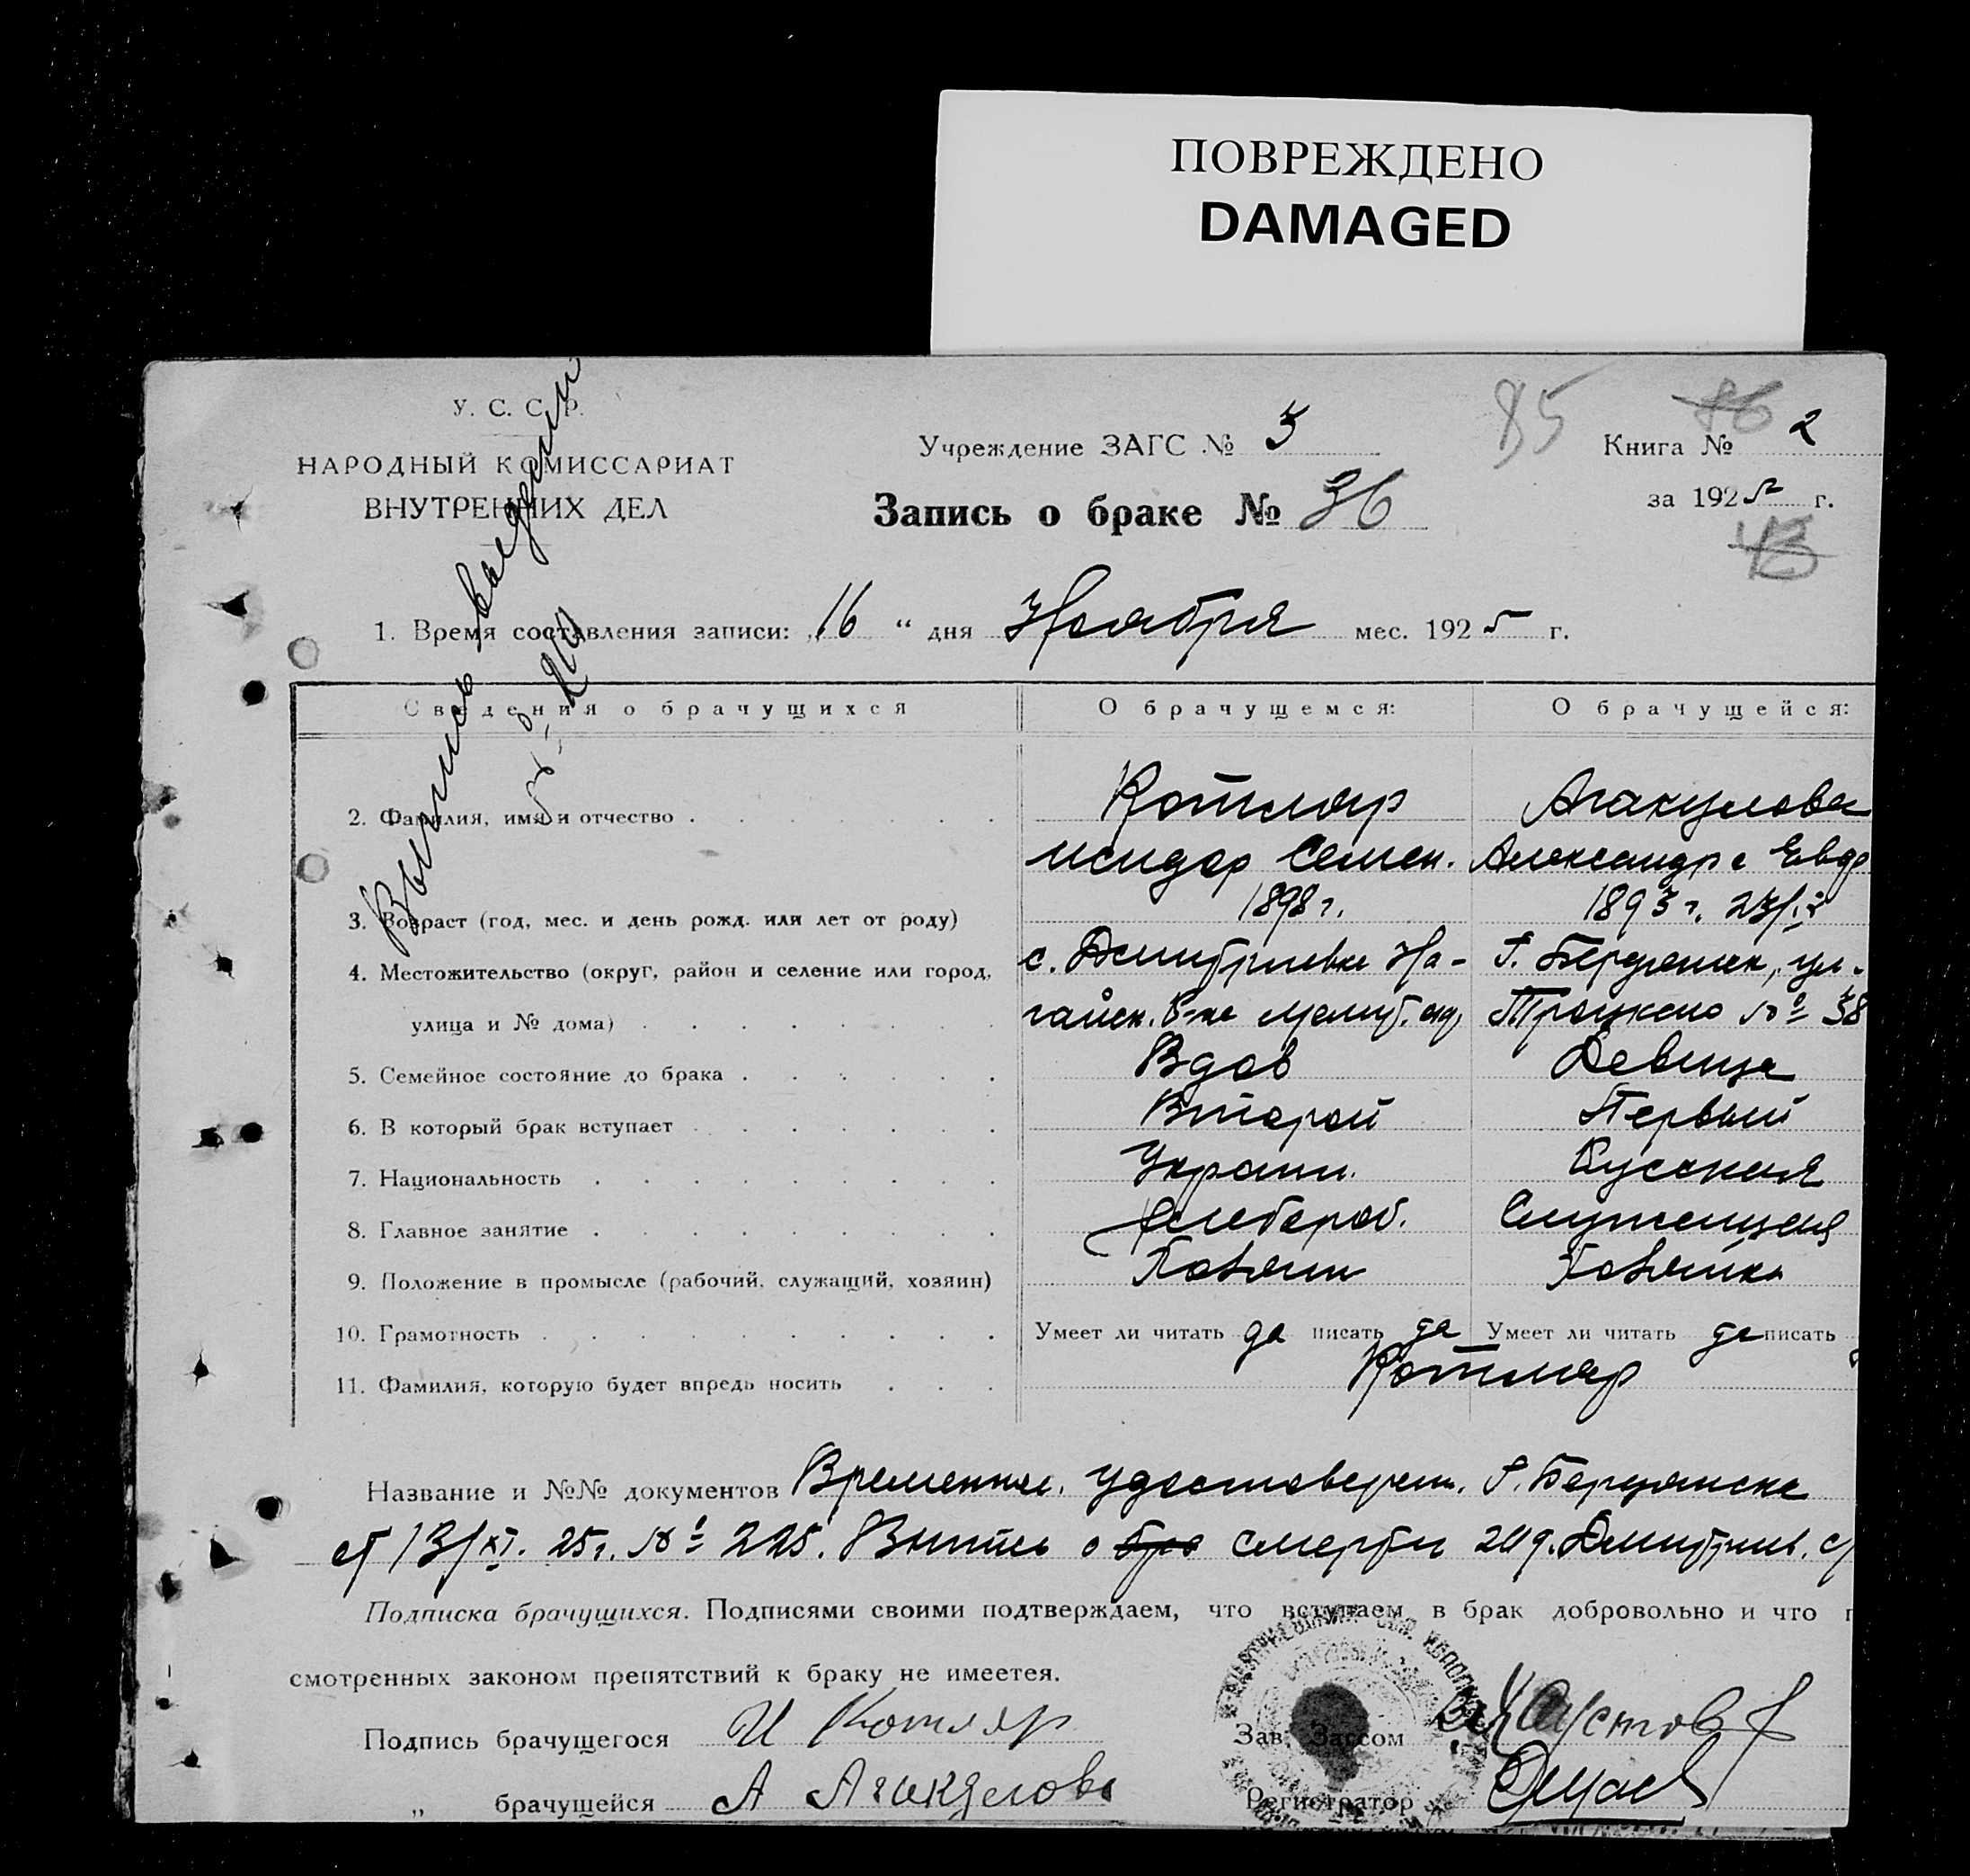 ПОВРЕЖДЕНО
DAMAGED
У. С. С. Р.
НАРОДНЫЙ КОМИССАРИАТ
ВНУТРЕННИХ ДЕЛ
Выпись выдана
Учреждение ЗАГС № 3
85
86
Книга № 2
Запись о браке № 36
за 1925 г.
43
1. Время составления записи: „16 “ дня Ноября мес. 1925 г.
Сведения о брачущихся О брачущемся: О брачущейся:
2. Фамилия, имя и отчество Котляр Агакулова
Исидор Семен. Александра Евдо
3. Возраст (год, мес. и день рожд. или лет от роду) 1898 г. 1893 г.
4. Местожительство (округ, район и селение или город, с. Дмитриевка На- г. Бердянск, ул.
улица и № дома) гайск. Р-на Мелит. окр. Троцкого № 38
5. Семейное состояние до брака Вдов Девица
6. В который брак вступает Второй Первый
7. Национальность Украин. Русская
8. Главное занятие Хлебороб. Служащая
9. Положение в промысле (рабочий, служащий, хозяин) Хозяин Хозяйка
10. Грамотность Умеет ли читать да писать да Умеет ли читать да писать
11. Фамилия, которую будет впредь носить Котляр
Название и №№ документов Временное. удостоверен. г. Бердянска
от 13/XI. 25г. № 225. Выпись о бра смерти Дмитриев. с/
Подписка брачущихся. Подписями своими подтверждаем, что вступаем в брак добровольно и что п
смотренных законом препятствий к браку не имеетея.
Подпись брачущегося И Котляр Зав. Загсом
„ брачущейся А Агакулова Регистратор